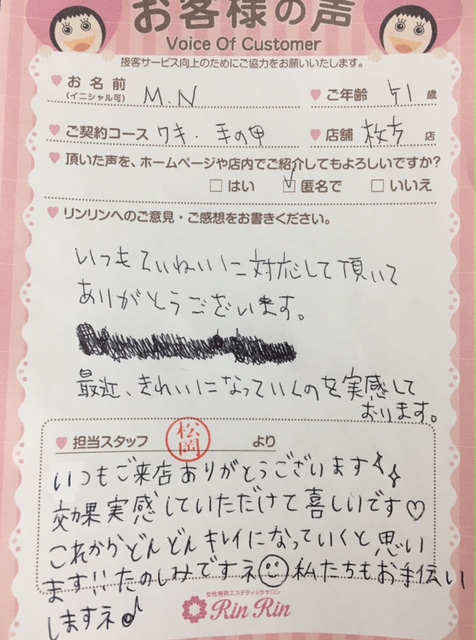 お客様の声
Voice Of Customer
接客サービス向上のためにご協力をお願いいたします。
お名前
(イニシャル可)
M.N
ご年齢 41 歳
ご契約コース ワキ・手の甲
店舗 枚方 店
頂いた声を、ホームページや店内でご紹介してもよろしいですか?
□はい ☑匿名で □いいえ
リンリンへのご意見・ご感想をお書きください。
いつもていねいに対応して頂いて
ありがとうございます。
最近、きれいになっていくのを実感して
おります。
担当スタッフ 松岡 より
いつもご来店ありがとうございます
効果実感していただけて喜しいです♡
これからどんどんキレイになっていくと思い
ます!!たのしみですネ☺私たちもお手伝い
しますネ♪
女性専用エステティックサロン
Rin Rin